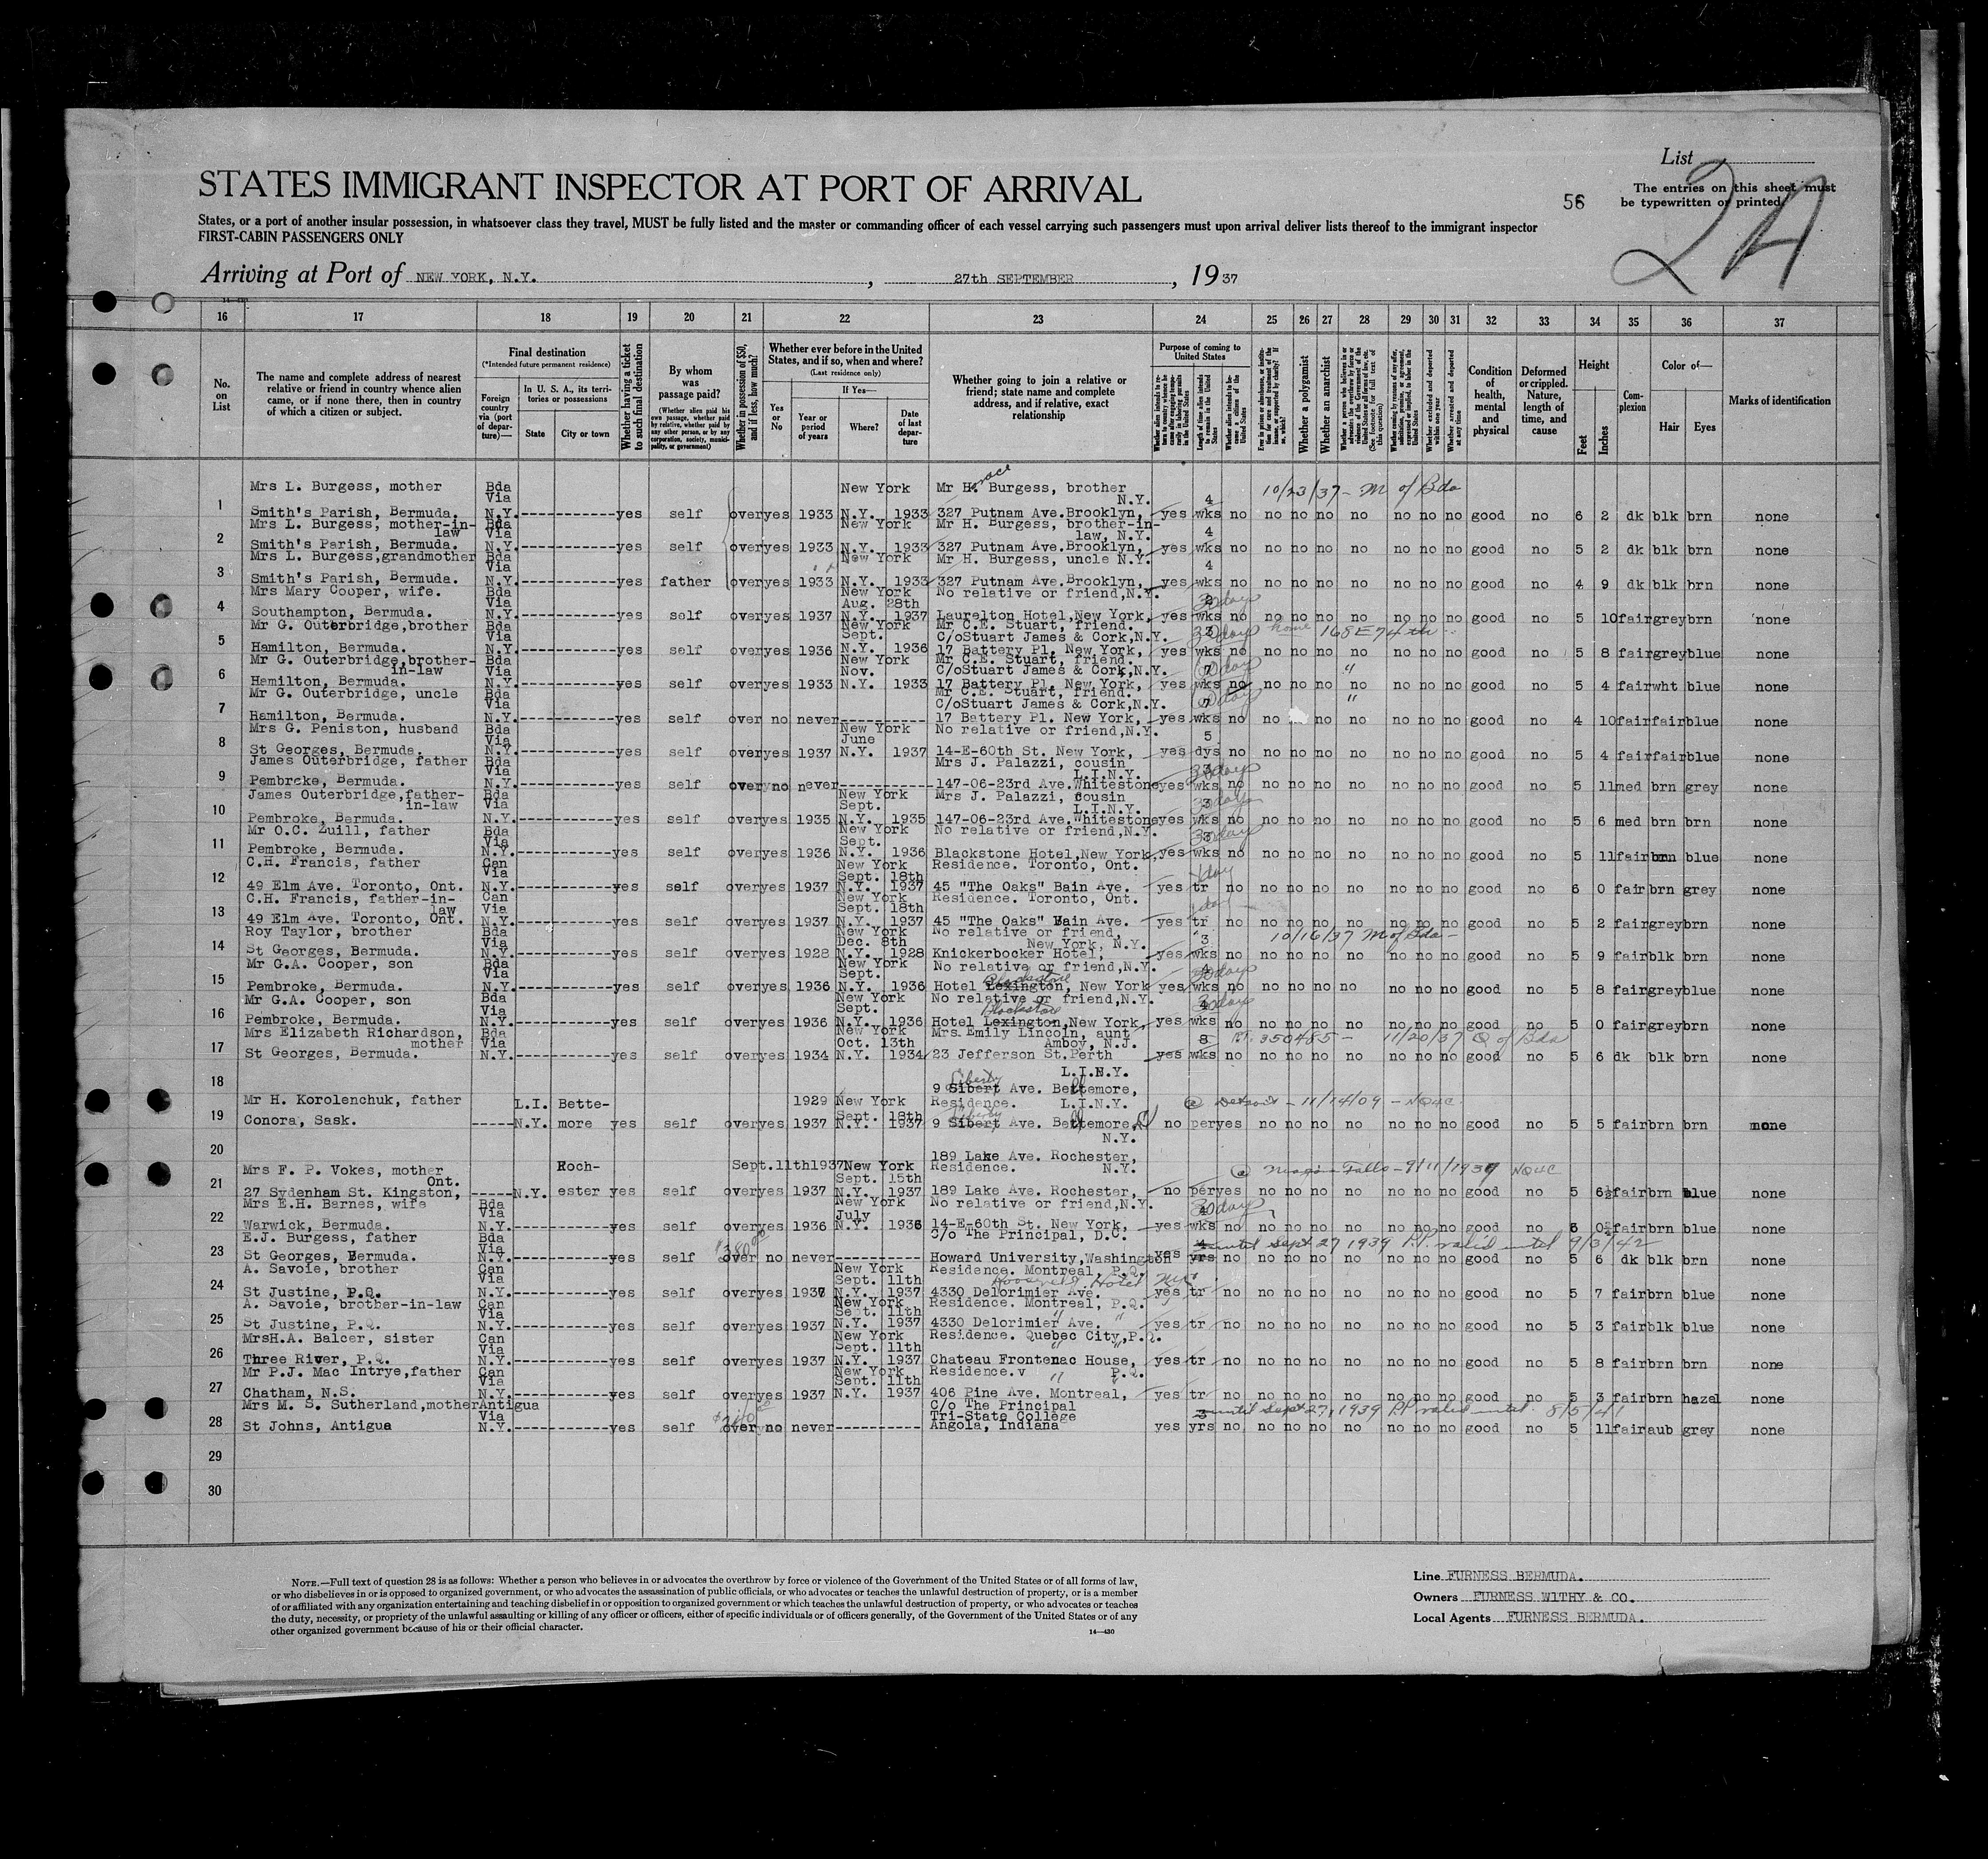 List
STATES IMMIGRANT INSPECTOR AT PORT OF ARRIVAL
56
The entries on this sheet must
be typewritten or printed.
2A
States, or a port of another insular possession, in whatsoever class they travel, MUST be fully listed and the master or commanding officer of each vessel carrying such passengers must upon arrival deliver lists thereof to the immigrant inspector
FIRST-CABIN PASSENGERS ONLY
Arriving at Port of NEW YORK, N.Y. , 27th SEPTEMBER , 19 37
16 17 18 19 20 21 22 23 24 25 26 27 28 29 30 31 32 33 34 35 36 37
No. on List
The name and complete address of nearest relative or friend in country whence alien came, or if none there, then in country of which a citizen or subject.
Final destination
(*Intended future permanent residence)
Foreign country via (port of departure)—
In U. S. A., its territories or possessions
State
City or town
Whether having a ticket to such final destination
By whom was passage paid?
(Whether alien paid his own passage, whether paid by relative, whether paid by any other person, or by any corporation, society, municipality, or government)
Whether in possession of $50, and if less, how much?
Whether ever before in the United States, and if so, when and where?
(Last residence only)
Yes or No
If Yes—
Year or period of years
Where?
Date of last departure
Whether going to join a relative or friend; state name and complete address, and if relative, exact relationship
Purpose of coming to United States
Length of time alien intends to remain in the United States
Whether alien intends to become a citizen of the United States
Whether a polygamist
Whether an anarchist
Condition of health, mental and physical
Deformed or crippled. Nature, length of time, and cause
Height
Feet
Inches
Complexion
Color of—
Hair
Eyes
Marks of identification
1 Mrs L. Burgess, mother Bda Via New York Mr H. Burgess, brother N.Y. 4 10/23/37 - M of Bda
Smith's Parish, Bermuda. N.Y. yes self over yes 1933 N.Y. 1933 327 Putnam Ave. Brooklyn, yes wks no no no no no no no no good no 6 2 dk blk brn none
2 Mrs L. Burgess, mother-in-law Bda Via New York Mr H. Burgess, brother-in-law, N.Y. 4
Smith's Parish, Bermuda. N.Y. yes self over yes 1933 N.Y. 1933 327 Putnam Ave. Brooklyn, yes wks no no no no no no no no good no 5 2 dk blk brn none
3 Mrs L. Burgess, grandmother Bda Via New York Mr H. Burgess, uncle N.Y. 4
Smith's Parish, Bermuda. N.Y. yes father over yes 1933 N.Y. 1933 327 Putnam Ave. Brooklyn, yes wks no no no no no no no no good no 4 9 dk blk brn none
4 Mrs Mary Cooper, wife. Bda Via New York Aug. 28th No relative or friend, N.Y.
Southampton, Bermuda. N.Y. yes self over yes 1937 N.Y. 1937 Laurelton Hotel, New York, yes wks no no no no no no no no good no 5 10 fair grey brn none
5 Mr G. Outerbridge, brother Bda Via New York Sept. Mr C.E. Stuart, friend. C/o Stuart James & Cork, N.Y. home 168 E 74 th
Hamilton, Bermuda. N.Y. yes self over yes 1936 N.Y. 1936 17 Battery Pl. New York, yes wks no no no no no no no no good no 5 8 fair grey blue none
6 Mr G. Outerbridge, brother-in-law Bda Via New York Nov. Mr C.E. Stuart, friend. C/o Stuart James & Cork, N.Y. "
Hamilton, Bermuda. N.Y. yes self over yes 1933 N.Y. 1933 17 Battery Pl. New York, yes wks no no no no no no no no good no 5 4 fair wht blue none
7 Mr G. Outerbridge, uncle Bda Via Mr C.E. Stuart, friend. C/o Stuart James & Cork, N.Y. "
Hamilton, Bermuda. N.Y. yes self over no never 17 Battery Pl. New York, yes wks no no no no no no no good no 4 10 fair fair blue none
8 Mrs G. Peniston, husband Bda Via New York June No relative or friend, N.Y. 5
St Georges, Bermuda. N.Y. yes self over yes 1937 N.Y. 1937 14-E-60th St. New York, yes dys no no no no no no no no good no 5 4 fair fair blue none
9 James Outerbridge, father Bda Via Mrs J. Palazzi, cousin L.I.N.Y.
Pembroke, Bermuda. N.Y. yes self over no never 147-06-23rd Ave. Whitestone yes wks no no no no no no no no good no 5 11 med brn grey none
10 James Outerbridge, father-in-law Bda Via New York Sept. Mrs J. Palazzi, cousin L.I.N.Y.
Pembroke, Bermuda. N.Y. yes self over yes 1935 N.Y. 1935 147-06-23rd Ave. Whitestone yes wks no no no no no no no no good no 5 6 med brn brn none
11 Mr O.C. Zuill, father Bda Via New York Sept. No relative or friend, N.Y.
Pembroke, Bermuda. N.Y. yes self over yes 1936 N.Y. 1936 Blackstone Hotel, New York, yes wks no no no no no no no no good no 5 11 fair brn blue none
12 C.H. Francis, father Can Via New York Sept. 18th Residence. Toronto, Ont.
49 Elm Ave. Toronto, Ont. N.Y. yes self over yes 1937 N.Y. 1937 45 "The Oaks" Bain Ave. yes tr no no no no no no no no good no 6 0 fair brn grey none
13 C.H. Francis, father-in-law Can Via New York Sept. 18th Residence. Toronto, Ont.
49 Elm Ave. Toronto, Ont. N.Y. yes self over yes 1937 N.Y. 1937 45 "The Oaks" Bain Ave. yes tr no no no no no no no no good no 5 2 fair grey brn none
14 Roy Taylor, brother Bda Via New York Dec. 8th No relative or friend, New York, N.Y. 3 10/16/37 M of Bda
St Georges, Bermuda. N.Y. yes self over yes 1928 N.Y. 1928 Knickerbocker Hotel, yes wks no no no no no no no no good no 5 9 fair blk brn none
15 Mr G.A. Cooper, son Bda Via New York Sept. No relative or friend, N.Y. Blackstone
Pembroke, Bermuda. N.Y. yes self over yes 1936 N.Y. 1936 Hotel Lexington, New York yes wks no no no no no no no no good no 5 8 fair grey blue none
16 Mr G.A. Cooper, son Bda Via New York Sept. No relative or friend, N.Y. Blackstone
Pembroke, Bermuda. N.Y. yes self over yes 1936 N.Y. 1936 Hotel Lexington, New York, yes wks no no no no no no no no good no 5 0 fair grey brn none
17 Mrs Elizabeth Richardson, mother Bda Via New York Oct. 13th Mrs. Emily Lincoln, aunt Amboy, N.J. 8 350485 - 11/20/37 Q of Bda
St Georges, Bermuda. N.Y. yes self over yes 1934 N.Y. 1934 23 Jefferson St. Perth yes wks no no no no no no no no good no 5 6 dk blk brn none
18 L.I.N.Y.
Liberty
9 Sibert Ave. Bettemore,
19 Mr H. Korolenchuk, father L.I. Bette- 1929 New York Sept. 18th Residence. L.I.N.Y. Liberty @ Detroit - 11/14/09 - NQ4C
Conora, Sask. N.Y. more yes self over yes 1937 N.Y. 1937 9 Sibert Ave. Bettemore, no per yes no no no no no no no good no 5 5 fair brn brn none
20 N.Y.
189 Lake Ave. Rochester,
21 Mrs F. P. Vokes, mother Ont. Roch- Sept. 11th 1937 New York Sept. 15th Residence. N.Y. @ Niagara Falls - 9/11/1937 NQ4C
27 Sydenham St. Kingston, N.Y. ester yes self over yes 1937 N.Y. 1937 189 Lake Ave. Rochester, no per yes no no no no no no no good no 5 6½ fair brn blue none
22 Mrs E.H. Barnes, wife Bda Via New York July No relative or friend, N.Y.
Warwick, Bermuda. N.Y. yes self over yes 1936 N.Y. 1936 14-E-60th St. New York, yes wks no no no no no no no no good no 6 0½ fair brn blue none
23 E.J. Burgess, father Bda Via $380 C/o The Principal, D.C. until Sept 27 1939 PP. valid until 9/3/42
St Georges, Bermuda. N.Y. yes self over no never Howard University, Washington yes yrs no no no no no no no no good no 5 6 dk blk brn none
24 A. Savoie, brother Can Via New York Sept. 11th Residence. Montreal, P.Q. Roosevelt Hotel
St Justine, P.Q. N.Y. yes self over yes 1937 N.Y. 1937 4330 Delorimier Ave. yes tr no no no no no no no no good no 5 7 fair brn blue none
25 A. Savoie, brother-in-law Can Via New York Sept. 11th Residence. Montreal, P.Q. "
St Justine, P.Q. N.Y. yes self over yes 1937 N.Y. 1937 4330 Delorimier Ave. " yes tr no no no no no no no no good no 5 3 fair blk blue none
26 MrsH.A. Balcer, sister Can Via New York Sept. 11th Residence. Quebec City, P.Q. " "
Three River, P.Q. N.Y. yes self over yes 1937 N.Y. 1937 Chateau Frontenac House, yes tr no no no no no no no no good no 5 8 fair brn brn none
27 Mr P.J. Mac Intrye, father Can Via New York Sept. 11th Residence. P.Q. " "
Chatham, N.S. N.Y. yes self over yes 1937 N.Y. 1937 406 Pine Ave. Montreal, yes tr no no no no no no no no good no 5 3 fair brn hazel none
28 Mrs M. S. Sutherland, mother Antigua Via C/o The Principal Tri-State College until Sept 27, 1939 PP. valid until 8/5/41
St Johns, Antigua N.Y. yes self over no never Angola, Indiana yes yrs no no no no no no no no good no 5 11 fair aub grey none
29
30
NOTE.—Full text of question 28 is as follows: Whether a person who believes in or advocates the overthrow by force or violence of the Government of the United States or of all forms of law,
or who disbelieves in or is opposed to organized government, or who advocates the assassination of public officials, or who advocates or teaches the unlawful destruction of property, or is a member
of or affiliated with any organization entertaining and teaching disbelief in or opposition to organized government or which teaches the unlawful destruction of property, or who advocates or teaches
the duty, necessity, or propriety of the unlawful assaulting or killing of any officer or officers, either of specific individuals or of officers generally, of the Government of the United States or of any
other organized government because of his or their official character.
14—430
Line FURNESS BERMUDA.
Owners FURNESS WITHY & CO.
Local Agents FURNESS BERMUDA.